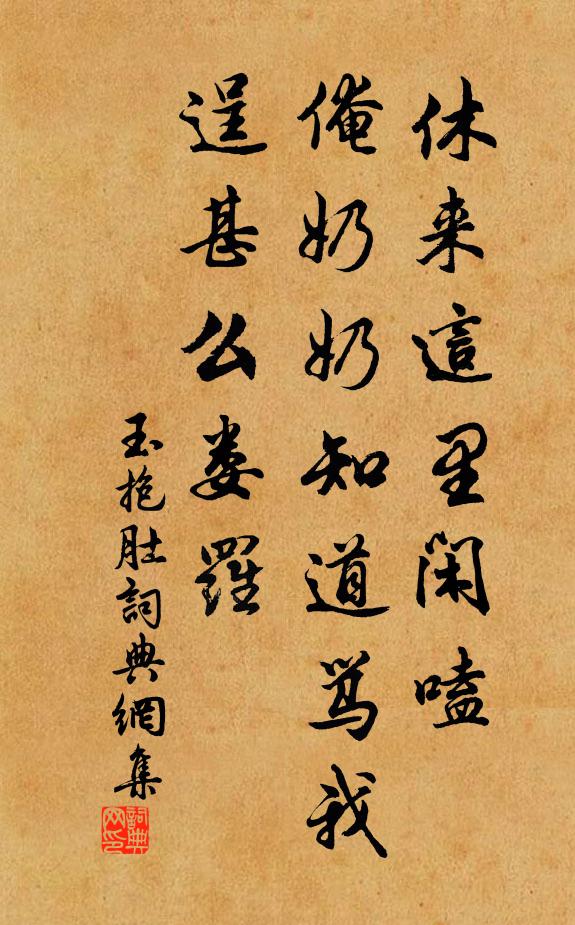 休来這里閑嗑
俺奶奶知道骂我
逞甚么娄羅
玉抱肚詞典網集
詞典网印